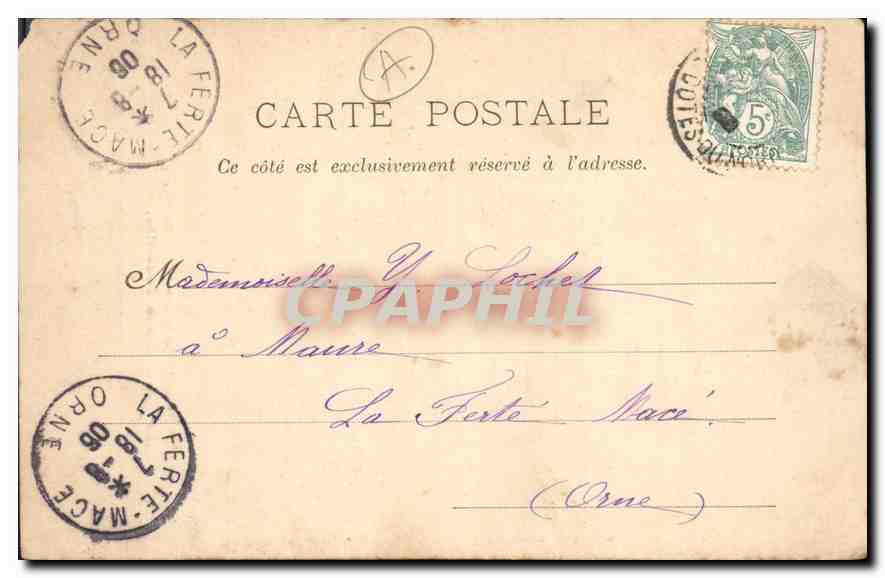 A.
CARTE POSTALE
Ce côté est exclusivement réservé à l'adresse.
Mademoiselle Y Lochet
à Maure
La Ferté Macé.
(Orne)
CPAPHIL
LA FERTE-MACE
ORNE
18
LA FERTE-MACE
ORNE
18
5c
POSTES
COTES-DU-NORD